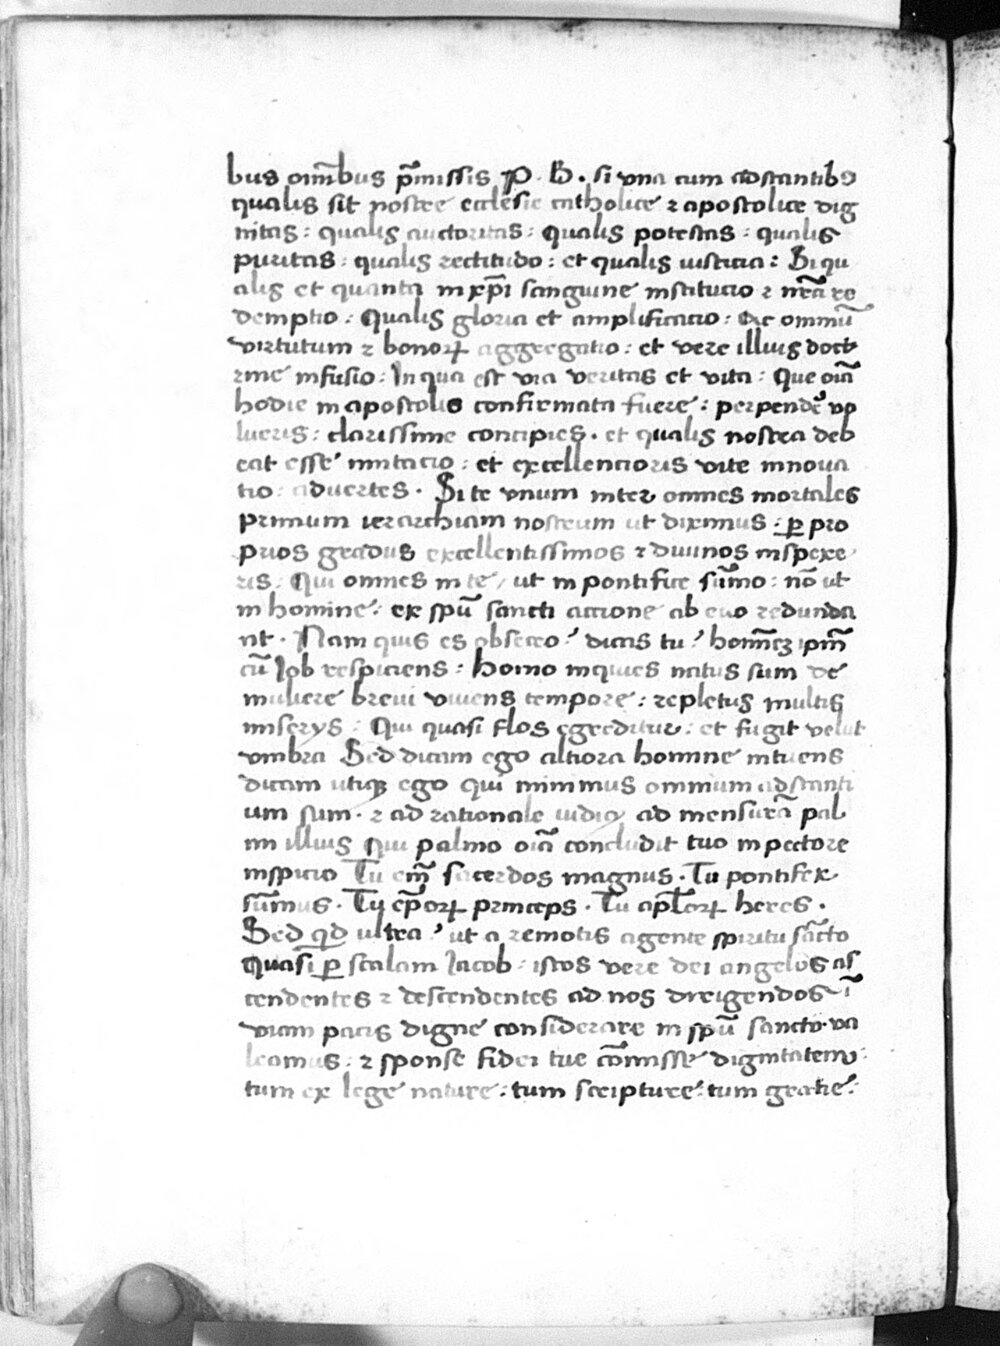 bus om̄ibus p̄missis P. B. si vna cum adstantibꝯ
qualis sit nostre ecclesie catholice ⁊ apostolice dig
nitas : qualis auctoritas : Qualis potestas : qualis
puritas : qualis rectitudo : et qualis iusticia : Si qu
alis et quanta in xp̄i sanguine institucio ⁊ nr̄a re
demptio : Qualis gloria et amplificatio : Ac omniū
virtutum ⁊ bonoꝝ aggregatio : et vere illius doct
rine infusio : In qua est via veritas et vita : Que oīa
hodie in apostolis confirmata fuere : perpendē vo
lueris : clarissime concipies . et qualis nostra deb
eat esse imitacio : et excellencioris vite innoua
tio : aduertes . Si te vnum inter omnes mortales
primum ierarchiam nostrum ut diximus : ꝑ pro
prios gradus excellentissimos ⁊ diuinos inspexe
ris : Qui omnes in te / ut in pontifice sūmo : nō ut
in homine : ex spū sancti actione ab euo redunda
nt . Nam quis es obsecro ? dicas tu ? hom̄eꝫ ip̄m
cū Job respiciens : homo inquies natus sum de
muliere breui viuens tempore : repletus multis
miserys : Qui quasi flos egreditur : et fugit velut
vmbra Sed dicam ego altiora homine intuens
dicam utiqꝫ ego qui minimus omnium adstanti
um sum . ⁊ ad rationale iudicij ad mensurā pal
mi illius qui palmo oīa concludit tuo in pectore
inspicio Tu em̄ sacerdos magnus . Tu pontifex
sūmus . Tu ep̄oꝝ princeps . Tu apl̄oꝝ heres .
Sed qd ultra ? ut a remotis agente spiritu sācto
Quasi ꝑ scalam Jacob : istos vere dei angelos as
cendentes ⁊ descendentes ad nos dirigendos ī
viam pacis digne considerare in spū sancto va
leamus : ⁊ sponse fidei tue cōmisse dignitatem
tum ex lege nature : tum scripture : tum gratie :